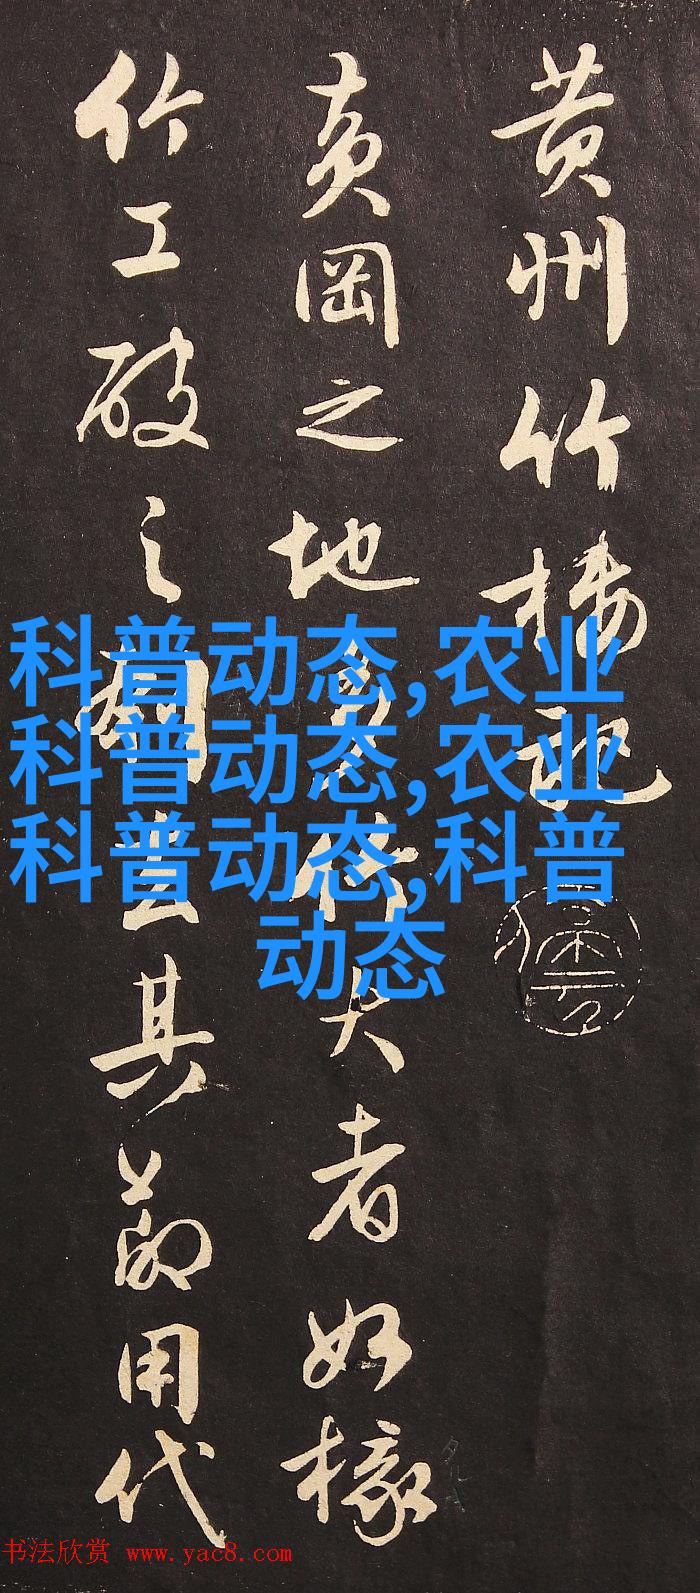 黄州竹樓記
黄岡之地多竹大者如椽
竹工破之刳去其節用代
科普动态,农业
科普动态,农业
科普动态,科普
动态
书法欣赏 www.yac8.com